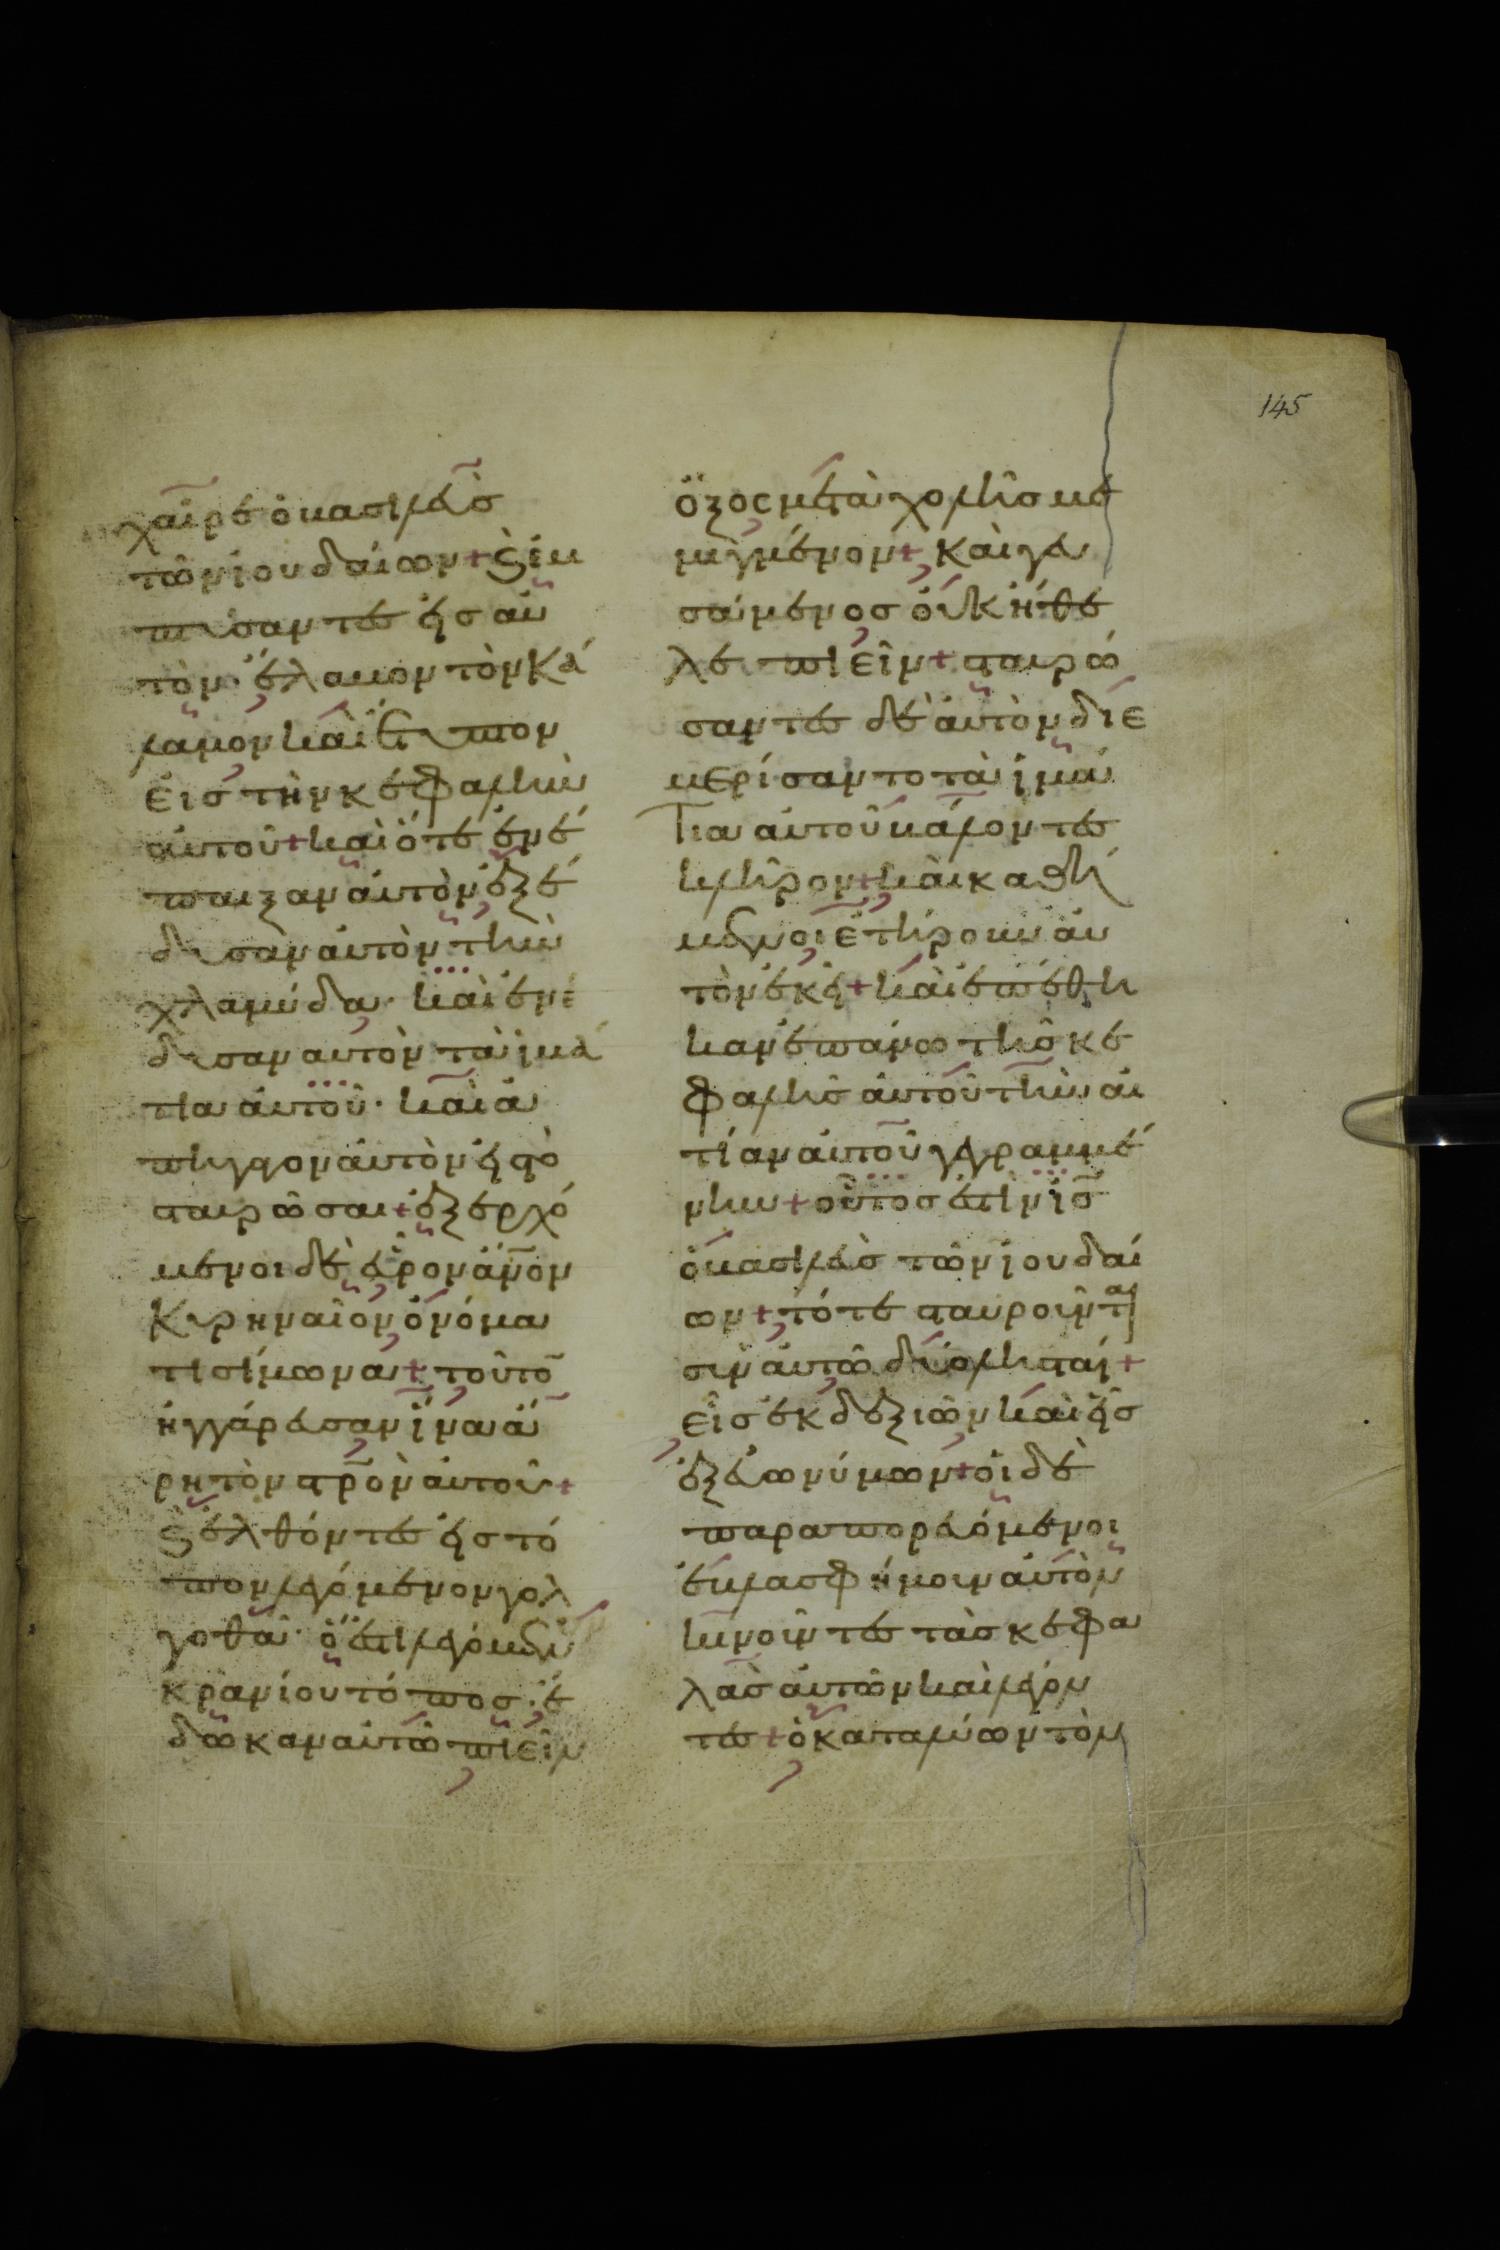 145
χαῖρε ὁ βασιλεὺς
τῶν ἰουδαίων + Ϛ ἐμ
πτύσαντες εἰς αὐ
τὸν· ἔλαβον τὸν κά
λαμον καὶ ἔτυπτον
εἰς τὴν κεφαλὴν
αὐτοῦ + καὶ ὅτε ἐνέ
παιξαν αὐτὸν ἐξέ
δυσαν αὐτὸν τὴν
χλαμύδα· καὶ ἐνέ
δυσαν αὐτὸν τὰ ἱμά
τια αὐτοῦ· καὶ ἀ
πήγαγον αὐτὸν εἰς τὸ
σταυρῶσαι + ἐξερχό
μενοι δὲ εὗρον ἄν̅ον
Κυρηναῖον ὀνόμα
τι σίμωνα + τοῦτο̅
ἠγγάρευσαν ἵνα ἄ
ρη τὸν στ̅ρὸν αὐτοῦ +
Ϛ ἐλθόντες εἰς τό
πον λεγόμενον γολ
γοθᾶ· ὅ ἐστι λεγόμενο̅
κρανίου τόπος· ἔ
δωκαν αὐτῶ πιεῖν
ὄξος μετὰ χολῆς με
μιγμένον + καὶ γευ
σάμενος οὐκ ἤθε
λε πιεῖν + σταυρώ
σαντες δὲ αὐτὸν διε
μερίσαντο τὰ ἱμά
τια αὐτοῦ βάλοντες
κλῆρον + καὶ καθή
μενοι ἐτήρουν αὐ
τὸν ἐκεῖ + καὶ ἐπέθη
καν ἐπάνω τῆς κε
φαλῆς αὐτοῦ τὴν αἰ
τίαν αὐτοῦ γεγραμμέ
νην + οὗτος ἐστὶν ἰ̅ς̅
ὁ βασιλεὺς τῶν ἰουδαί
ων + τότε σταυροῦνται
σὺν αὐτῶ δύο λησταί +
εἷς ἐκ δεξιῶν καὶ εἷς
ἐξ εὐωνύμων + οἱ δὲ
παραπορευόμενοι
ἐβλασφήμουν αὐτὸν
κινοῦντες τὰς κεφα
λὰς αὐτῶν καὶ λέγον
τες + ὁ καταλύων τὸν